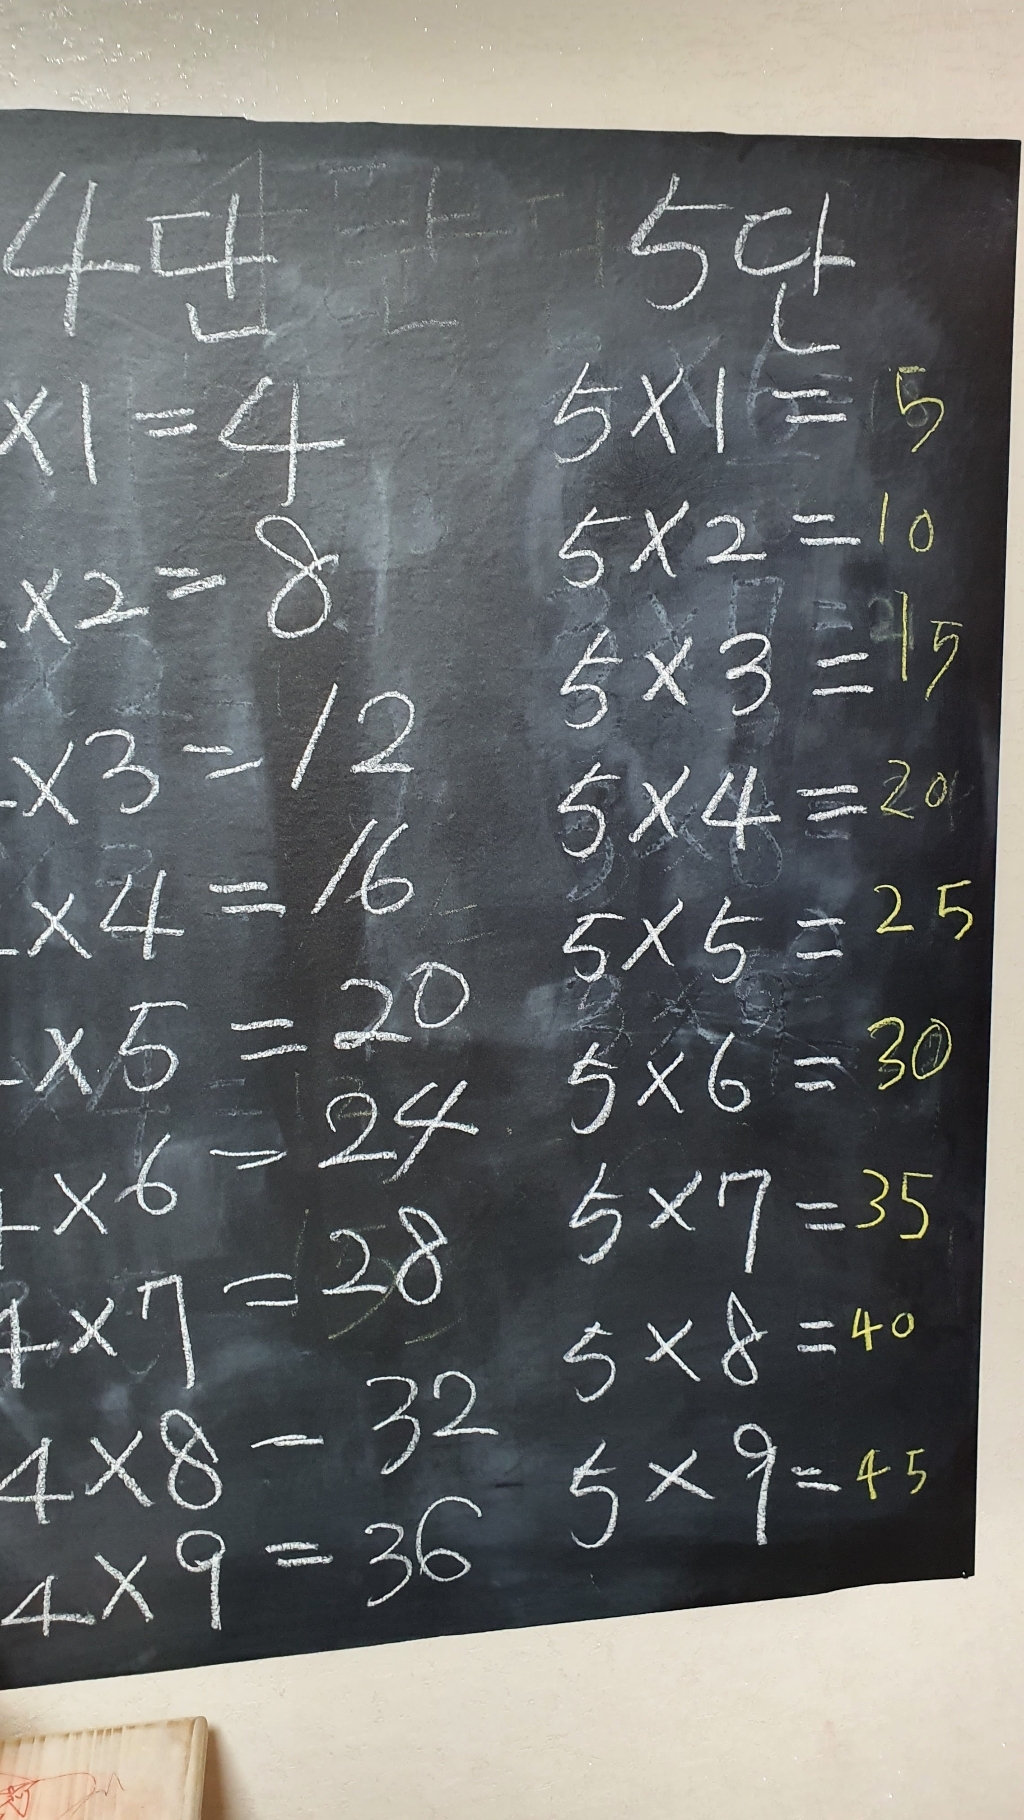 4단
×1=4
×2=8
×3=12
×4=16
×5=20
4×6=24
4×7=28
4×8=32
4×9=36
5단
5×1=5
5×2=10
5×3=15
5×4=20
5×5=25
5×6=30
5×7=35
5×8=40
5×9=45